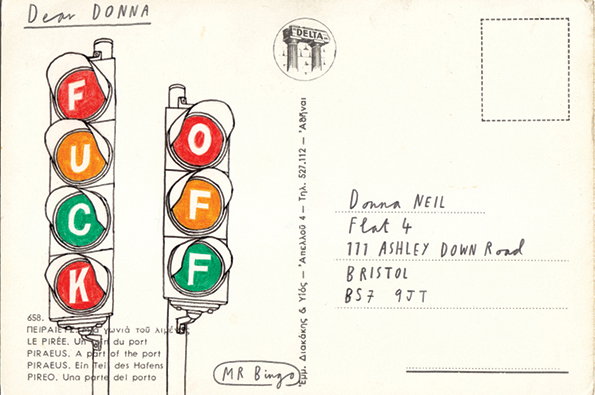 Dear DONNA
F
U
C
K
O
F
F
DELTA
658.
γωνιά τοῦ
LE PIRÉE. Un du port
PIRAEUS. A part of the port
PIRAEUS. Ein Teil des Hafens
PIREO. Una parte del porto
MR Bingo
Εμμ. Διακάκης & Υἱός – Ἀπελλοῦ 4 – Τηλ. 527.112 – Ἀθῆναι
Donna NEIL
Flat 4
111 ASHLEY DOWN Road
BRISTOL
BS7 9JT